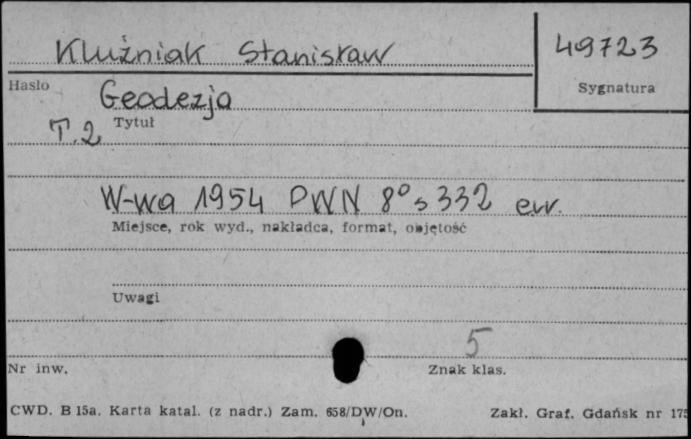 Kluźniak Stanisław 49723
Hasło Sygnatura
Geodezja
T.2 Tytuł
W-wa 1954 PWN 8° s 332 err.
Miejsce, rok wyd., nakładca, format, objętość
Uwagi
5
Nr inw. Znak klas.
CWD. B 15a. Karta katal. (z nadr.) Zam. 658/DW/On. Zakł. Graf. Gdańsk nr 175